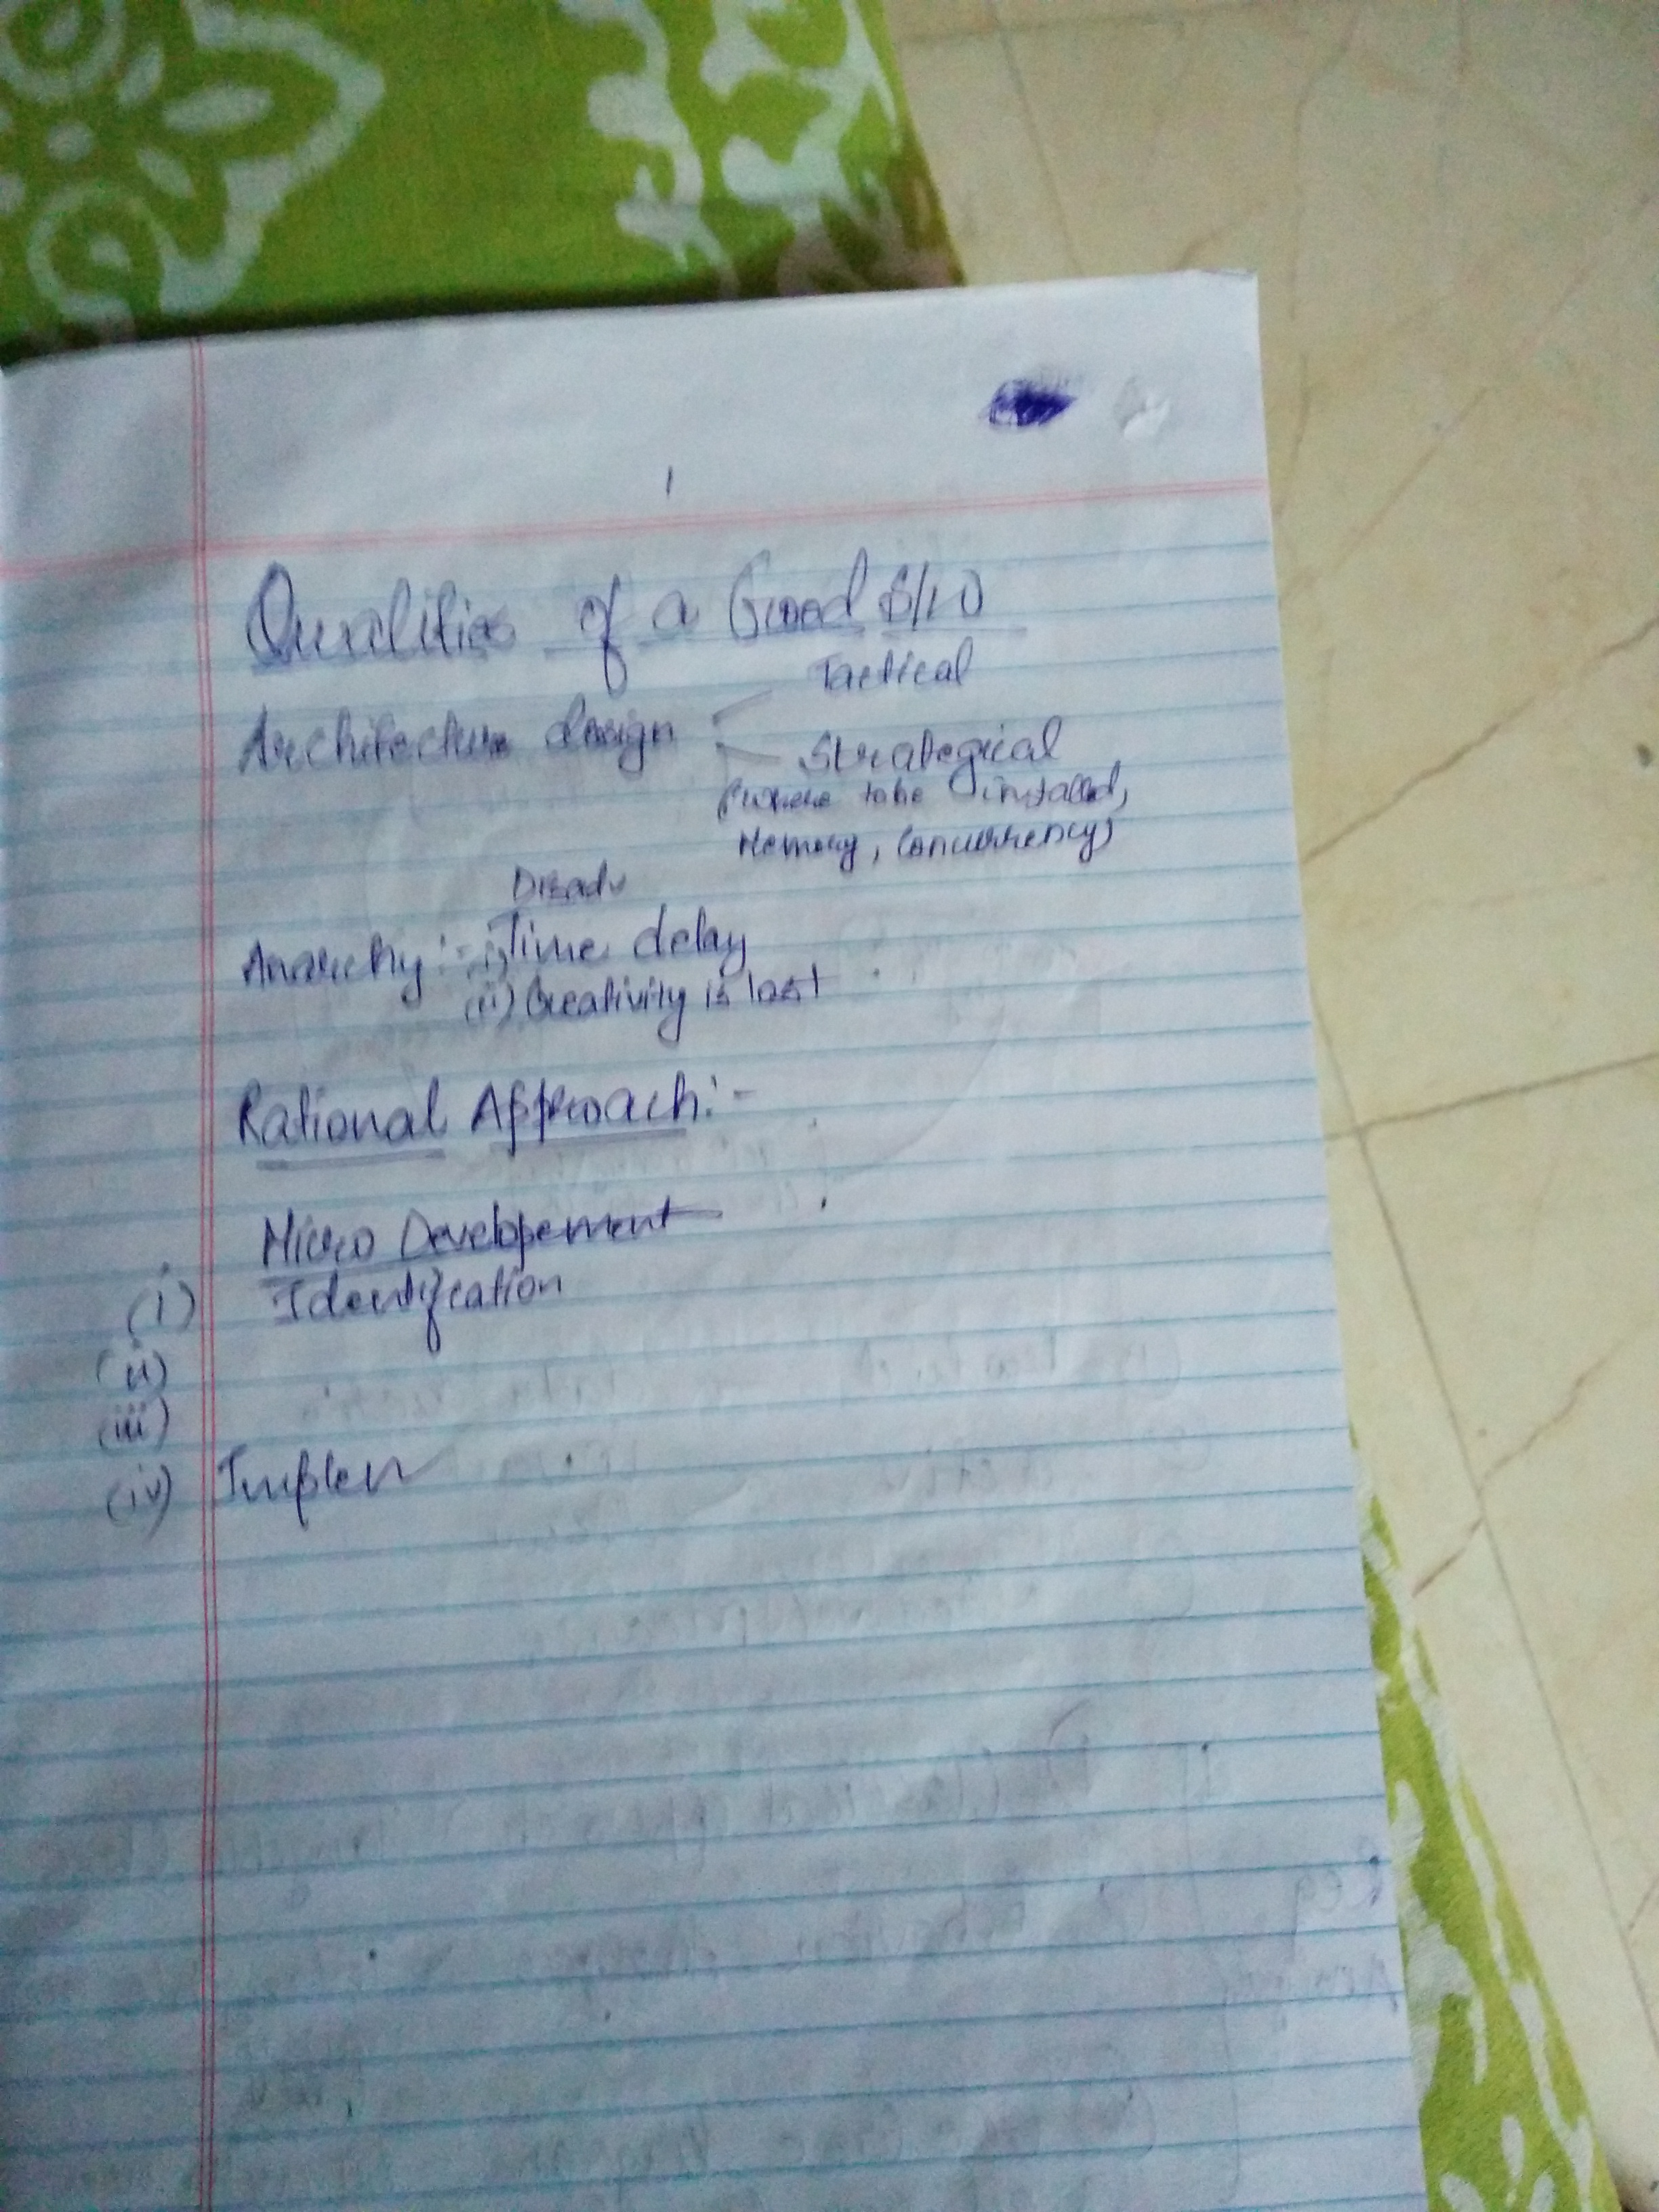 Qualities of a Good S/W
Tactical
Architecture design
Strategical
(where to be installed,
Memory, Concurrency)
Disadv
Anarchy :- i) Time delay
(ii) Creativity is last
Rational Approach :-
Micro Developement
(i) Identification
(ii)
(iii)
(iv) Implem